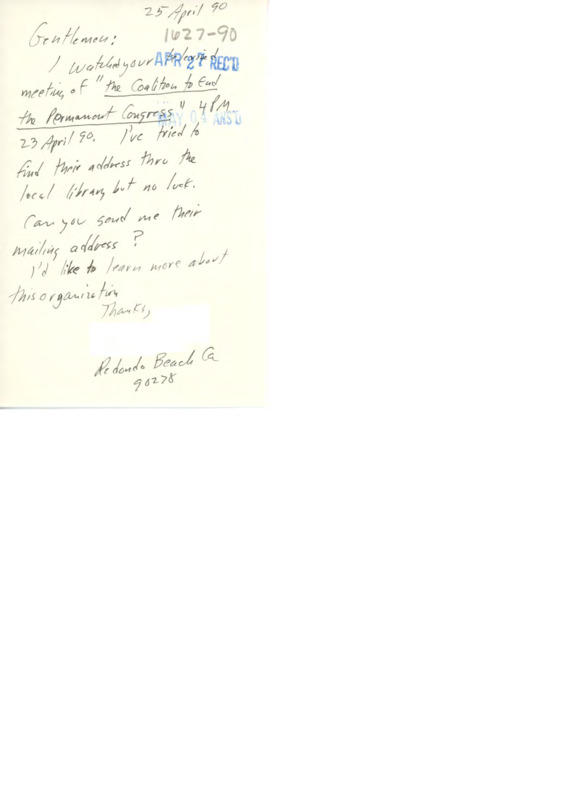 25 April 90
1627-90
Gentlemen:
I watched your televised
APR 27 REC'D
meeting of "the Coalition to End
the Permanent Congress" 4 PM
MAY 04 ANS'D
23 April 90. I've tried to
find their address thru the
local library but no luck.
Can you send me their
mailing address?
I'd like to learn more about
this organization
Thanks,
Redondo Beach Ca
90278